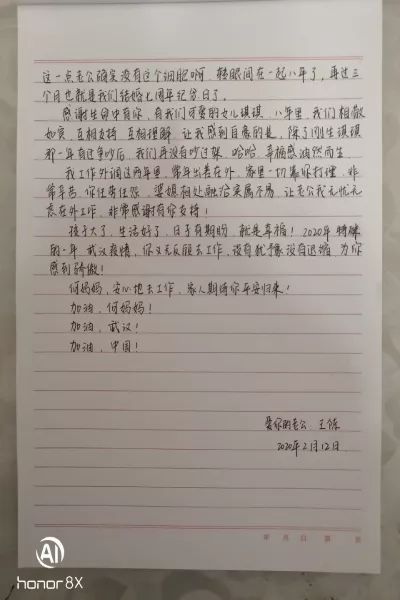 这一点老公确实没有这个细胞啊,转眼间在一起八年了,再过三
个月也就是我们结婚七周年纪念日了。
感谢生命中有你,有我们可爱的女儿琪琪,八年里,我们相敬
如宾,互相支持,互相理解,让我感到自豪的是,除了刚生琪琪
那一年有过争吵后,我们再没有吵过架,哈哈,幸福感油然而生
我工作外调这两年里,常年出差在外,家里一切靠你打理,非
常辛苦,你任劳任怨,婆媳相处融洽实属不易,让老公我无忧无
虑在外工作,非常感谢有你支持!
孩子大了,生活好了,日子有期盼,就是幸福!2020年特殊
的一年,武汉疫情,你义无反顾去工作,没有犹豫没有退缩,为你
感到骄傲!
何妈妈,安心地去工作,家人期待你平安归来!
加油,何妈妈!
加油,武汉!
加油,中国!
爱你的老公 王
2020年2月12日
年 月 日 第 页
AI
honor 8X